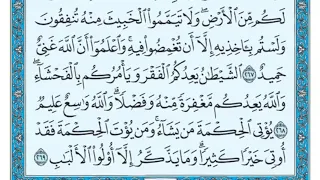 لَكُم مِّنَ ٱلْأَرْضِ ۖ وَلَا تَيَمَّمُوا۟ ٱلْخَبِيثَ مِنْهُ تُنفِقُونَ
وَلَسْتُم بِـَٔاخِذِيهِ إِلَّآ أَن تُغْمِضُوا۟ فِيهِ ۚ وَٱعْلَمُوٓا۟ أَنَّ ٱللَّهَ غَنِىٌّ
حَمِيدٌ ﴿٢٦٧﴾ ٱلشَّيْطَٰنُ يَعِدُكُمُ ٱلْفَقْرَ وَيَأْمُرُكُم بِٱلْفَحْشَآءِ ۖ
وَٱللَّهُ يَعِدُكُم مَّغْفِرَةً مِّنْهُ وَفَضْلًا ۗ وَٱللَّهُ وَٰسِعٌ عَلِيمٌ ﴿٢٦٨﴾
يُؤْتِى ٱلْحِكْمَةَ مَن يَشَآءُ ۚ وَمَن يُؤْتَ ٱلْحِكْمَةَ فَقَدْ
أُوتِىَ خَيْرًا كَثِيرًا ۗ وَمَا يَذَّكَّرُ إِلَّآ أُو۟لُوا۟ ٱلْأَلْبَٰبِ ﴿٢٦٩﴾